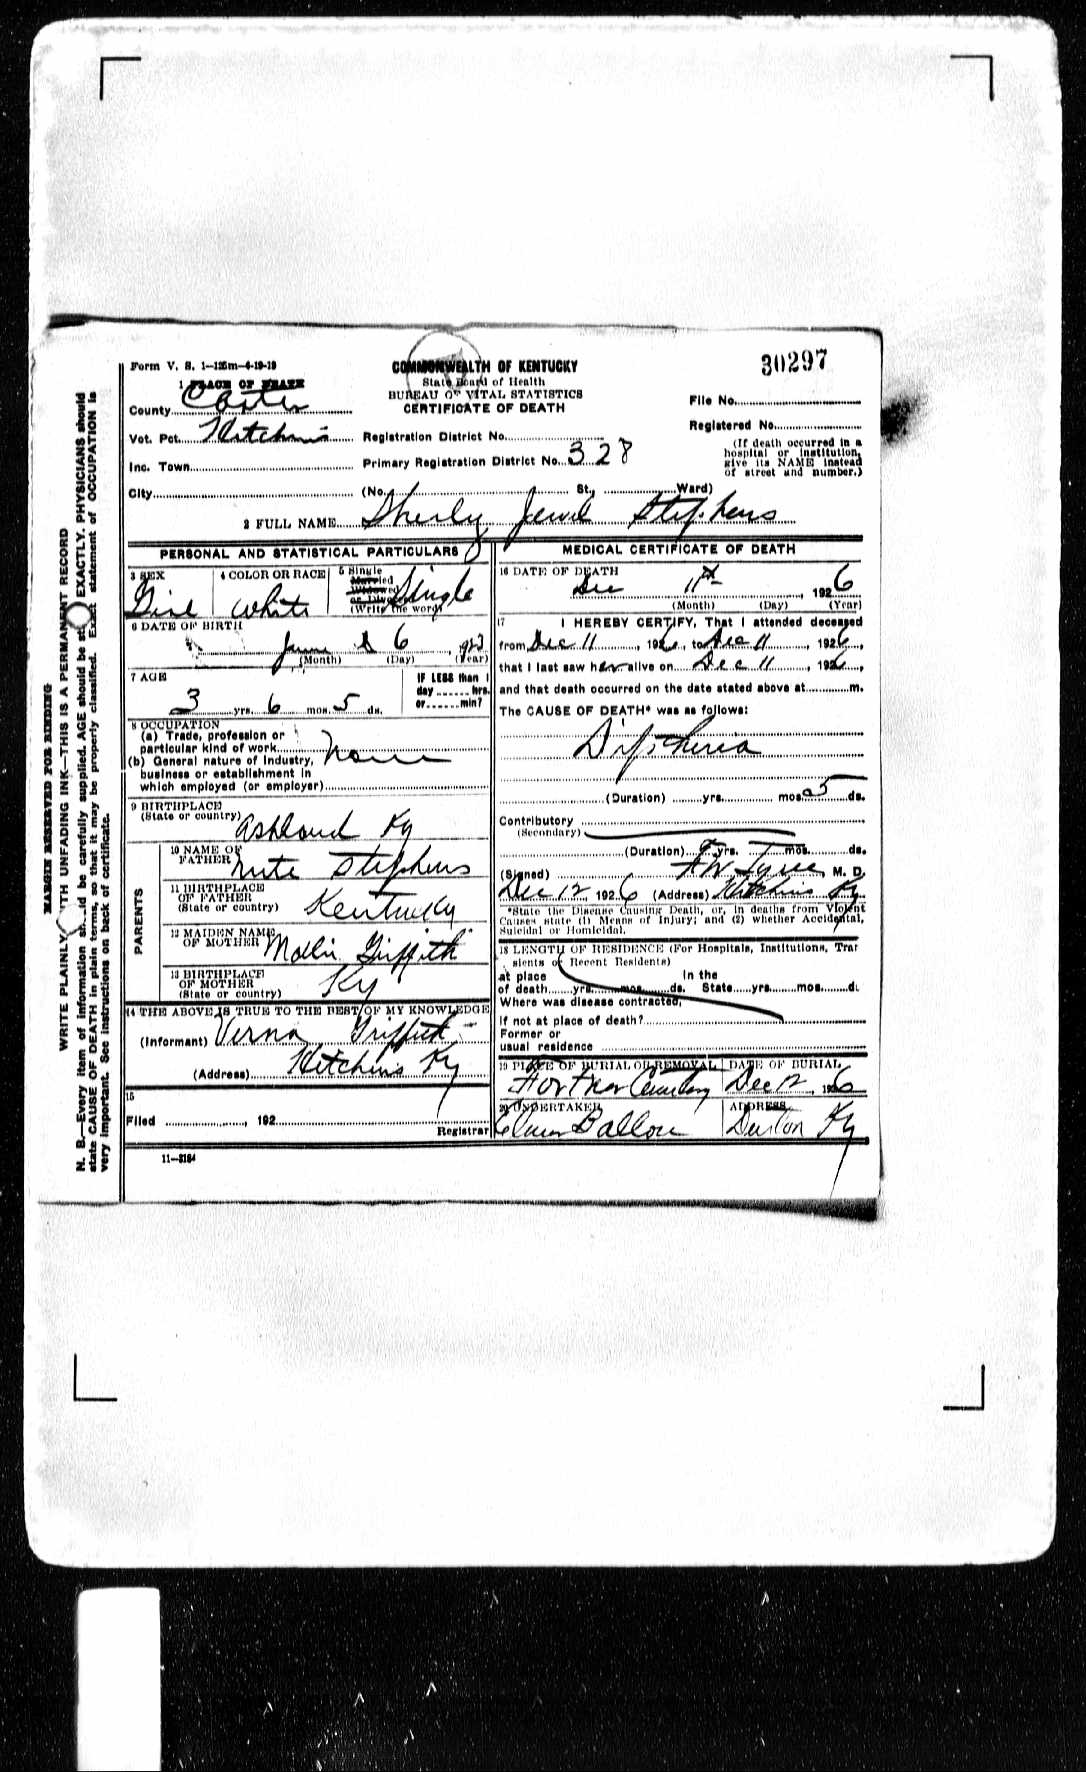 Form V. S. 1—125m—4-19-19
COMMONWEALTH OF KENTUCKY
State Board of Health
BUREAU OF VITAL STATISTICS
CERTIFICATE OF DEATH
30297
1 PLACE OF DEATH
County Carter
File No.
Vot. Pct. Hitchins
Registration District No.
Registered No.
Inc. Town
Primary Registration District No. 328
(If death occurred in a
hospital or institution,
give its NAME instead
of street and number.)
City
(No. St., Ward)
2 FULL NAME Sherly Jewel Stephens
PERSONAL AND STATISTICAL PARTICULARS
3 SEX
Girl
4 COLOR OR RACE
White
5 Single
Married
Widowed
or Divorced
(Write the word)
Single
6 DATE OF BIRTH
June 6, 1923
(Month) (Day) (Year)
7 AGE
3 yrs. 6 mos. 5 ds.
IF LESS than 1
day ...... hrs.
or ...... min?
8 OCCUPATION
(a) Trade, profession or
particular kind of work
(b) General nature of Industry,
business or establishment in
which employed (or employer)
None
9 BIRTHPLACE
(State or country) Ashland Ky
PARENTS
10 NAME OF
FATHER Nute Stephens
11 BIRTHPLACE
OF FATHER
(State or country) Kentucky
12 MAIDEN NAME
OF MOTHER Mollie Griffith
13 BIRTHPLACE
OF MOTHER
(State or country) Ky
14 THE ABOVE IS TRUE TO THE BEST OF MY KNOWLEDGE
(Informant) Verna Griffith
(Address) Hitchins Ky
15
Filed , 192
Registrar
11—3184
MEDICAL CERTIFICATE OF DEATH
16 DATE OF DEATH
Dec 11th, 1926
(Month) (Day) (Year)
17 I HEREBY CERTIFY, That I attended deceased
from Dec 11, 1926, to Dec 11, 1926,
that I last saw her alive on Dec 11, 1926,
and that death occurred on the date stated above at m.
The CAUSE OF DEATH* was as follows:
Diptheria
(Duration) yrs. mos. 5 ds.
Contributory
(Secondary)
(Duration) yrs. mos. ds.
(Signed) M. D.
Dec 12, 1926 (Address) Hitchins Ky
*State the Disease Causing Death, or, in deaths from Violent
Causes state (1) Means of Injury; and (2) whether Accidental,
Suicidal or Homicidal.
18 LENGTH OF RESIDENCE (For Hospitals, Institutions, Tran
sients or Recent Residents)
At place In the
of death yrs. mos. ds. State yrs. mos. d.
Where was disease contracted,
if not at place of death?
Former or
usual residence
19 PLACE OF BURIAL OR REMOVAL
DATE OF BURIAL
Cemetery Dec 12, 1926
20 UNDERTAKER
ADDRESS
Ballou
Denton Ky
MARGIN RESERVED FOR BINDING
WRITE PLAINLY WITH UNFADING INK—THIS IS A PERMANENT RECORD
N. B.—Every item of information should be carefully supplied. AGE should be stated EXACTLY. PHYSICIANS should
state CAUSE OF DEATH in plain terms, so that it may be properly classified. Exact statement of OCCUPATION is
very important. See instructions on back of certificate.